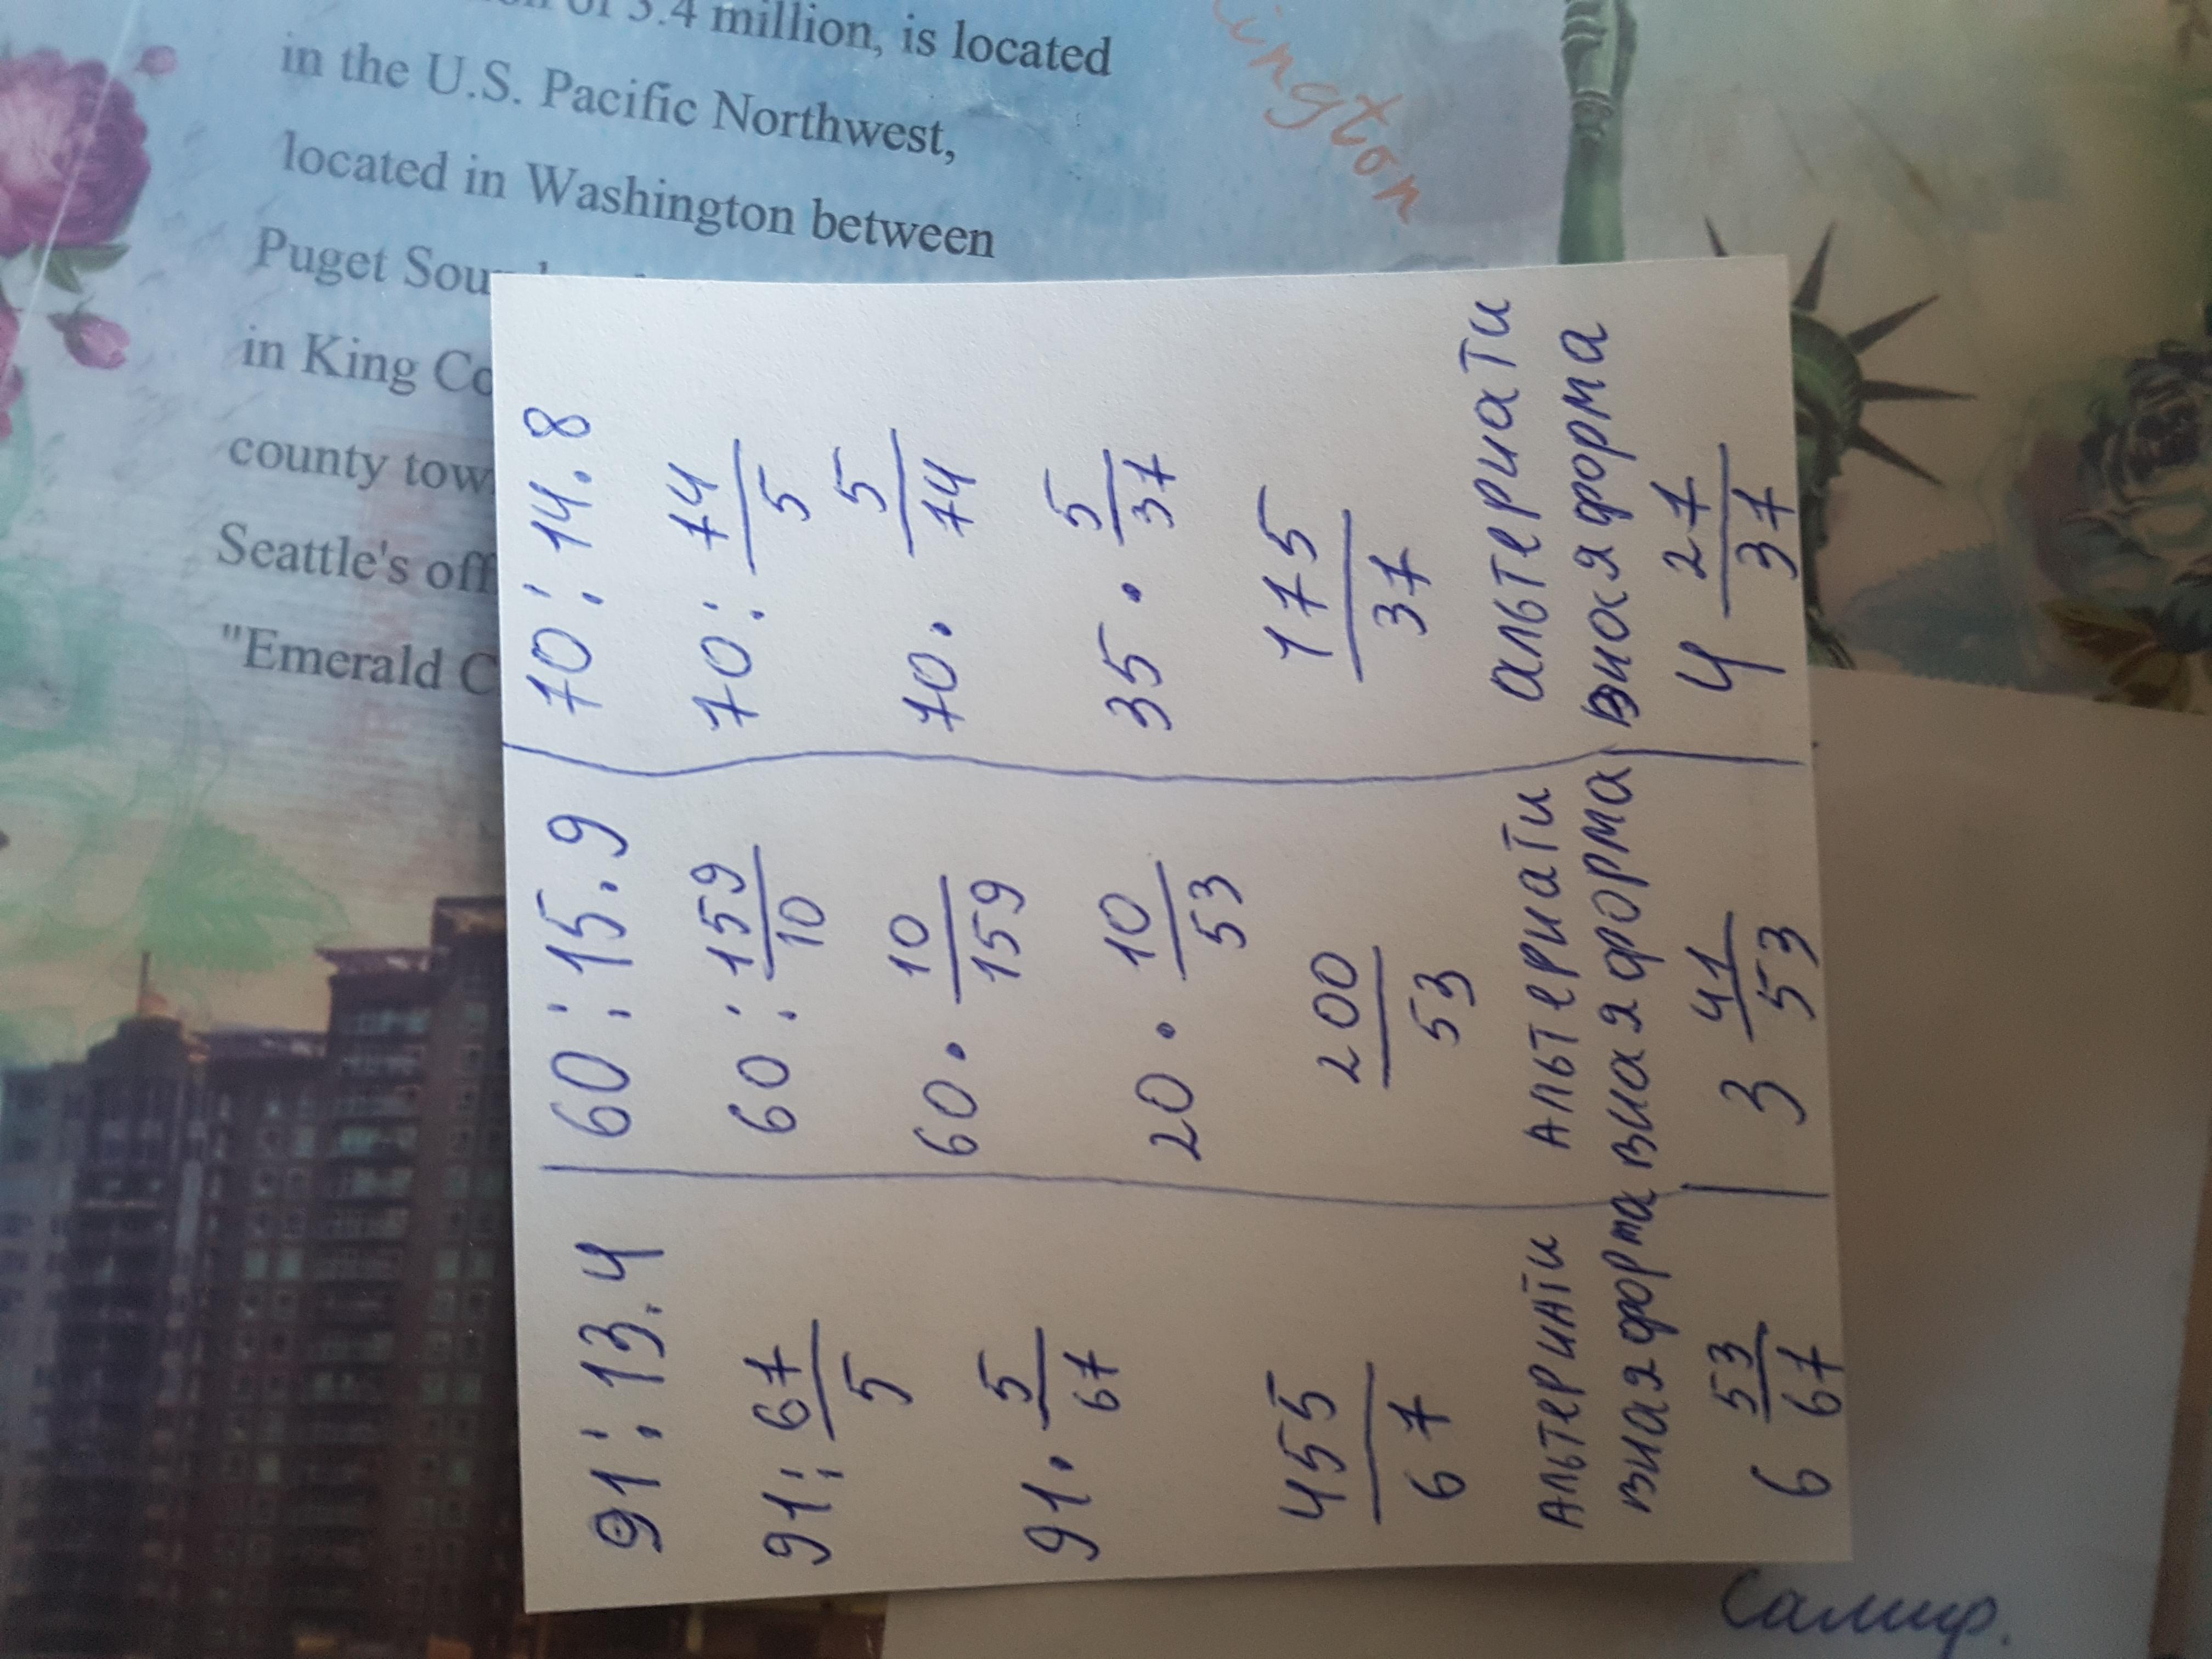 of 3.4 million, is located
in the U.S. Pacific Northwest,
located in Washington between
Puget
in King
county
Seattle's
"Emerald
ington
91 : 13.4
91 : 67/5
91 · 5/67
455/67
альтернати
вная форма
6 53/67
60 : 15.9
60 : 159/10
60 · 10/159
20 · 10/53
200/53
альтернати
вная форма
3 41/53
70 : 14.8
70 : 74/5
70 · 5/74
35 · 5/37
175/37
альтернати
вная форма
4 27/37
Салир.